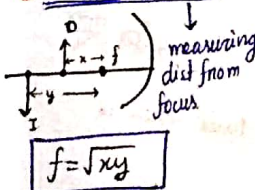 O
x f
y
I
measuring
dist from
focus
f=√xy